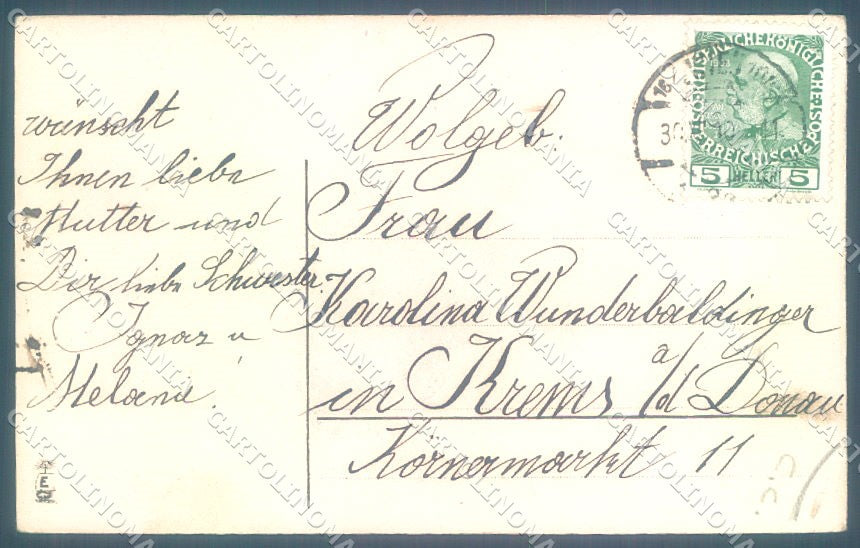 wünscht
Ihnen liebe
Mutter und
Dir liebe Schwester.
Ignaz u
Melanie.
Wolgeb.
Frau
Karolina Wunderbaldinger
in Krems a/d Donau
Körnermarkt 11
KAISERLICHE KÖNIGLICHE
ÖSTERREICHISCHE POST
5 HELLER 5
30
CARTOLINOMANIA